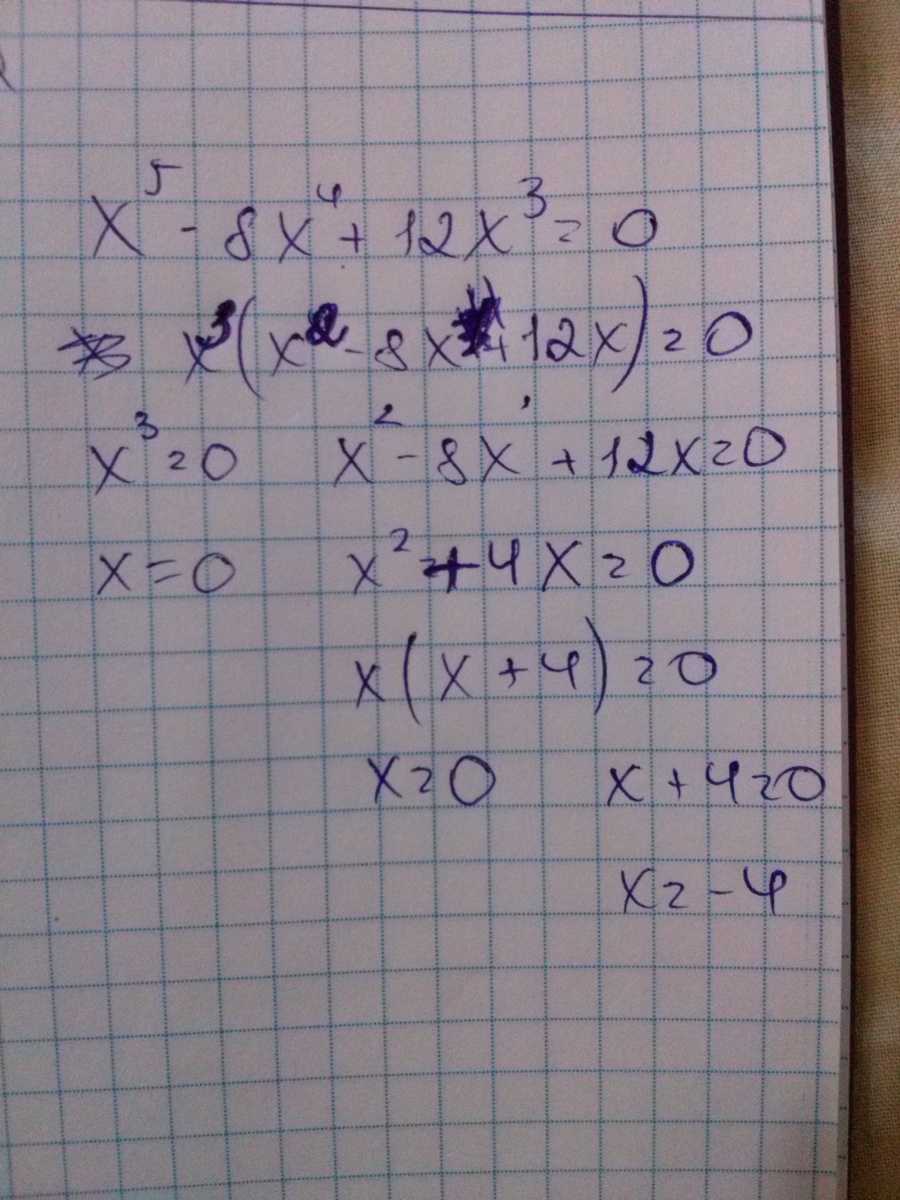 x⁵ - 8x⁴ + 12x³ = 0
x³(x² - 8x + 12x) = 0
x³ = 0 x² - 8x + 12x = 0
x = 0 x² + 4x = 0
x(x + 4) = 0
x = 0 x + 4 = 0
x = -4